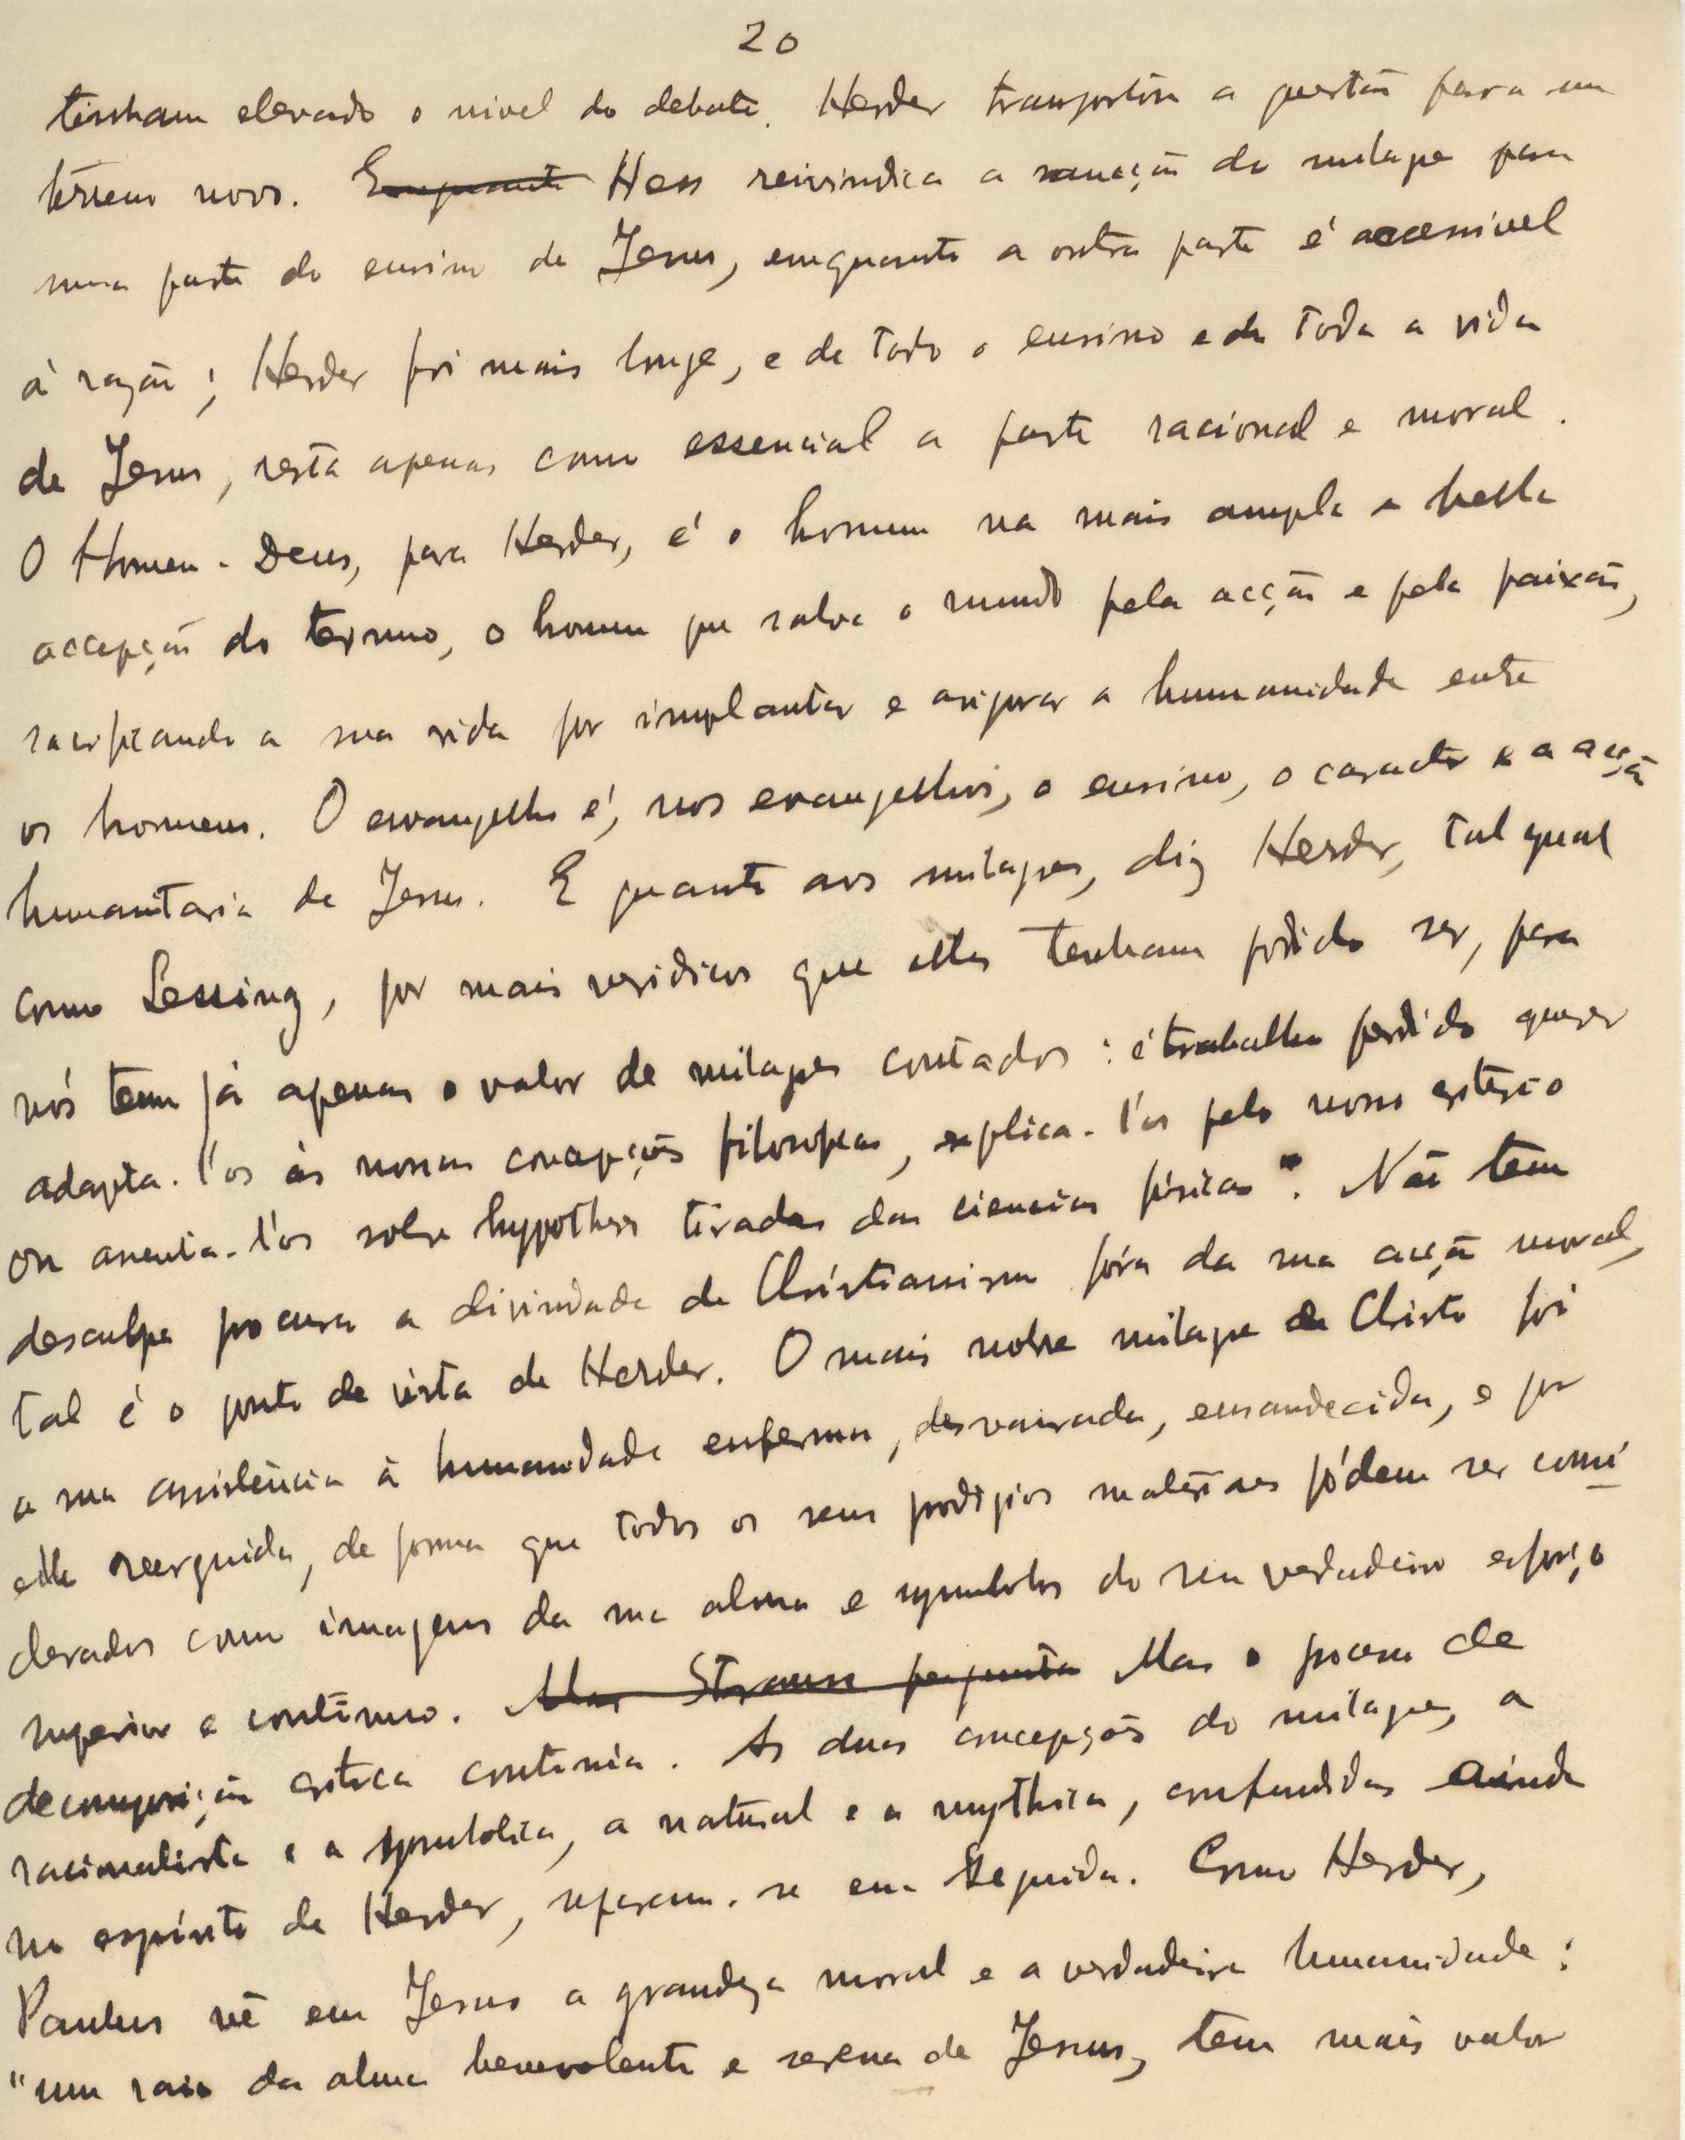 20
tinham elevado o nivel do debate. Herder transportou a questão para um
terreno novo. Emquanto Hess reivindica a sancção do milagre para
uma parte do ensino de Jesus, emquanto a outra parte é accessivel
á razão; Herder foi mais longe, e de todo o ensino e de toda a vida
de Jesus, resta apenas como essencial a parte racional e moral.
O Homem-Deus, para Herder, é o homem na mais ampla e bella
accepção do termo, o homem que salva o mundo pela acção e pela paixão,
sacrificando a sua vida por implantar e assegurar a humanidade entre
os homens. O evangelho é, nos evangelhos, o ensino, o caracter e a acção
humanitaria de Jesus. E quanto aos milagres, diz Herder, tal qual
como Lessing, por mais veridicos que elles tenham podido ser, para
nós tem já apenas o valor de milagres contados: é trabalho perdido querer
adapta-l'os ás nossas concepções filosoficas, explica-l'os pelo nosso criterio
ou assenta-l'os sobre hypotheses tiradas das ciencias fisicas". Não tem
desculpa procurar a divindade do Christianismo fóra da sua acção moral,
tal é o ponto de vista de Herder. O mais nobre milagre de Christo foi
a sua assistencia á humanidade enferma, desvairada, ensandecida, e por
elle reerguida, de forma que todos os seus prodigios materiaes pódem ser consi
derados como imagens da sua alma e symbolos do seu verdadeiro esforço
superior e continuo. Mas Strauss pergunta Mas o processo de
decomposição critica continúa. As duas concepções do milagre, a
racionalista e a symbolica, a natural e a mythica, confundidas ainda
no espirito de Herder, separam-se em seguida. Como Herder,
Paulus vê em Jesus a grandeza moral e a verdadeira humanidade:
"um raio da alma benevolente e serena de Jesus, tem mais valor